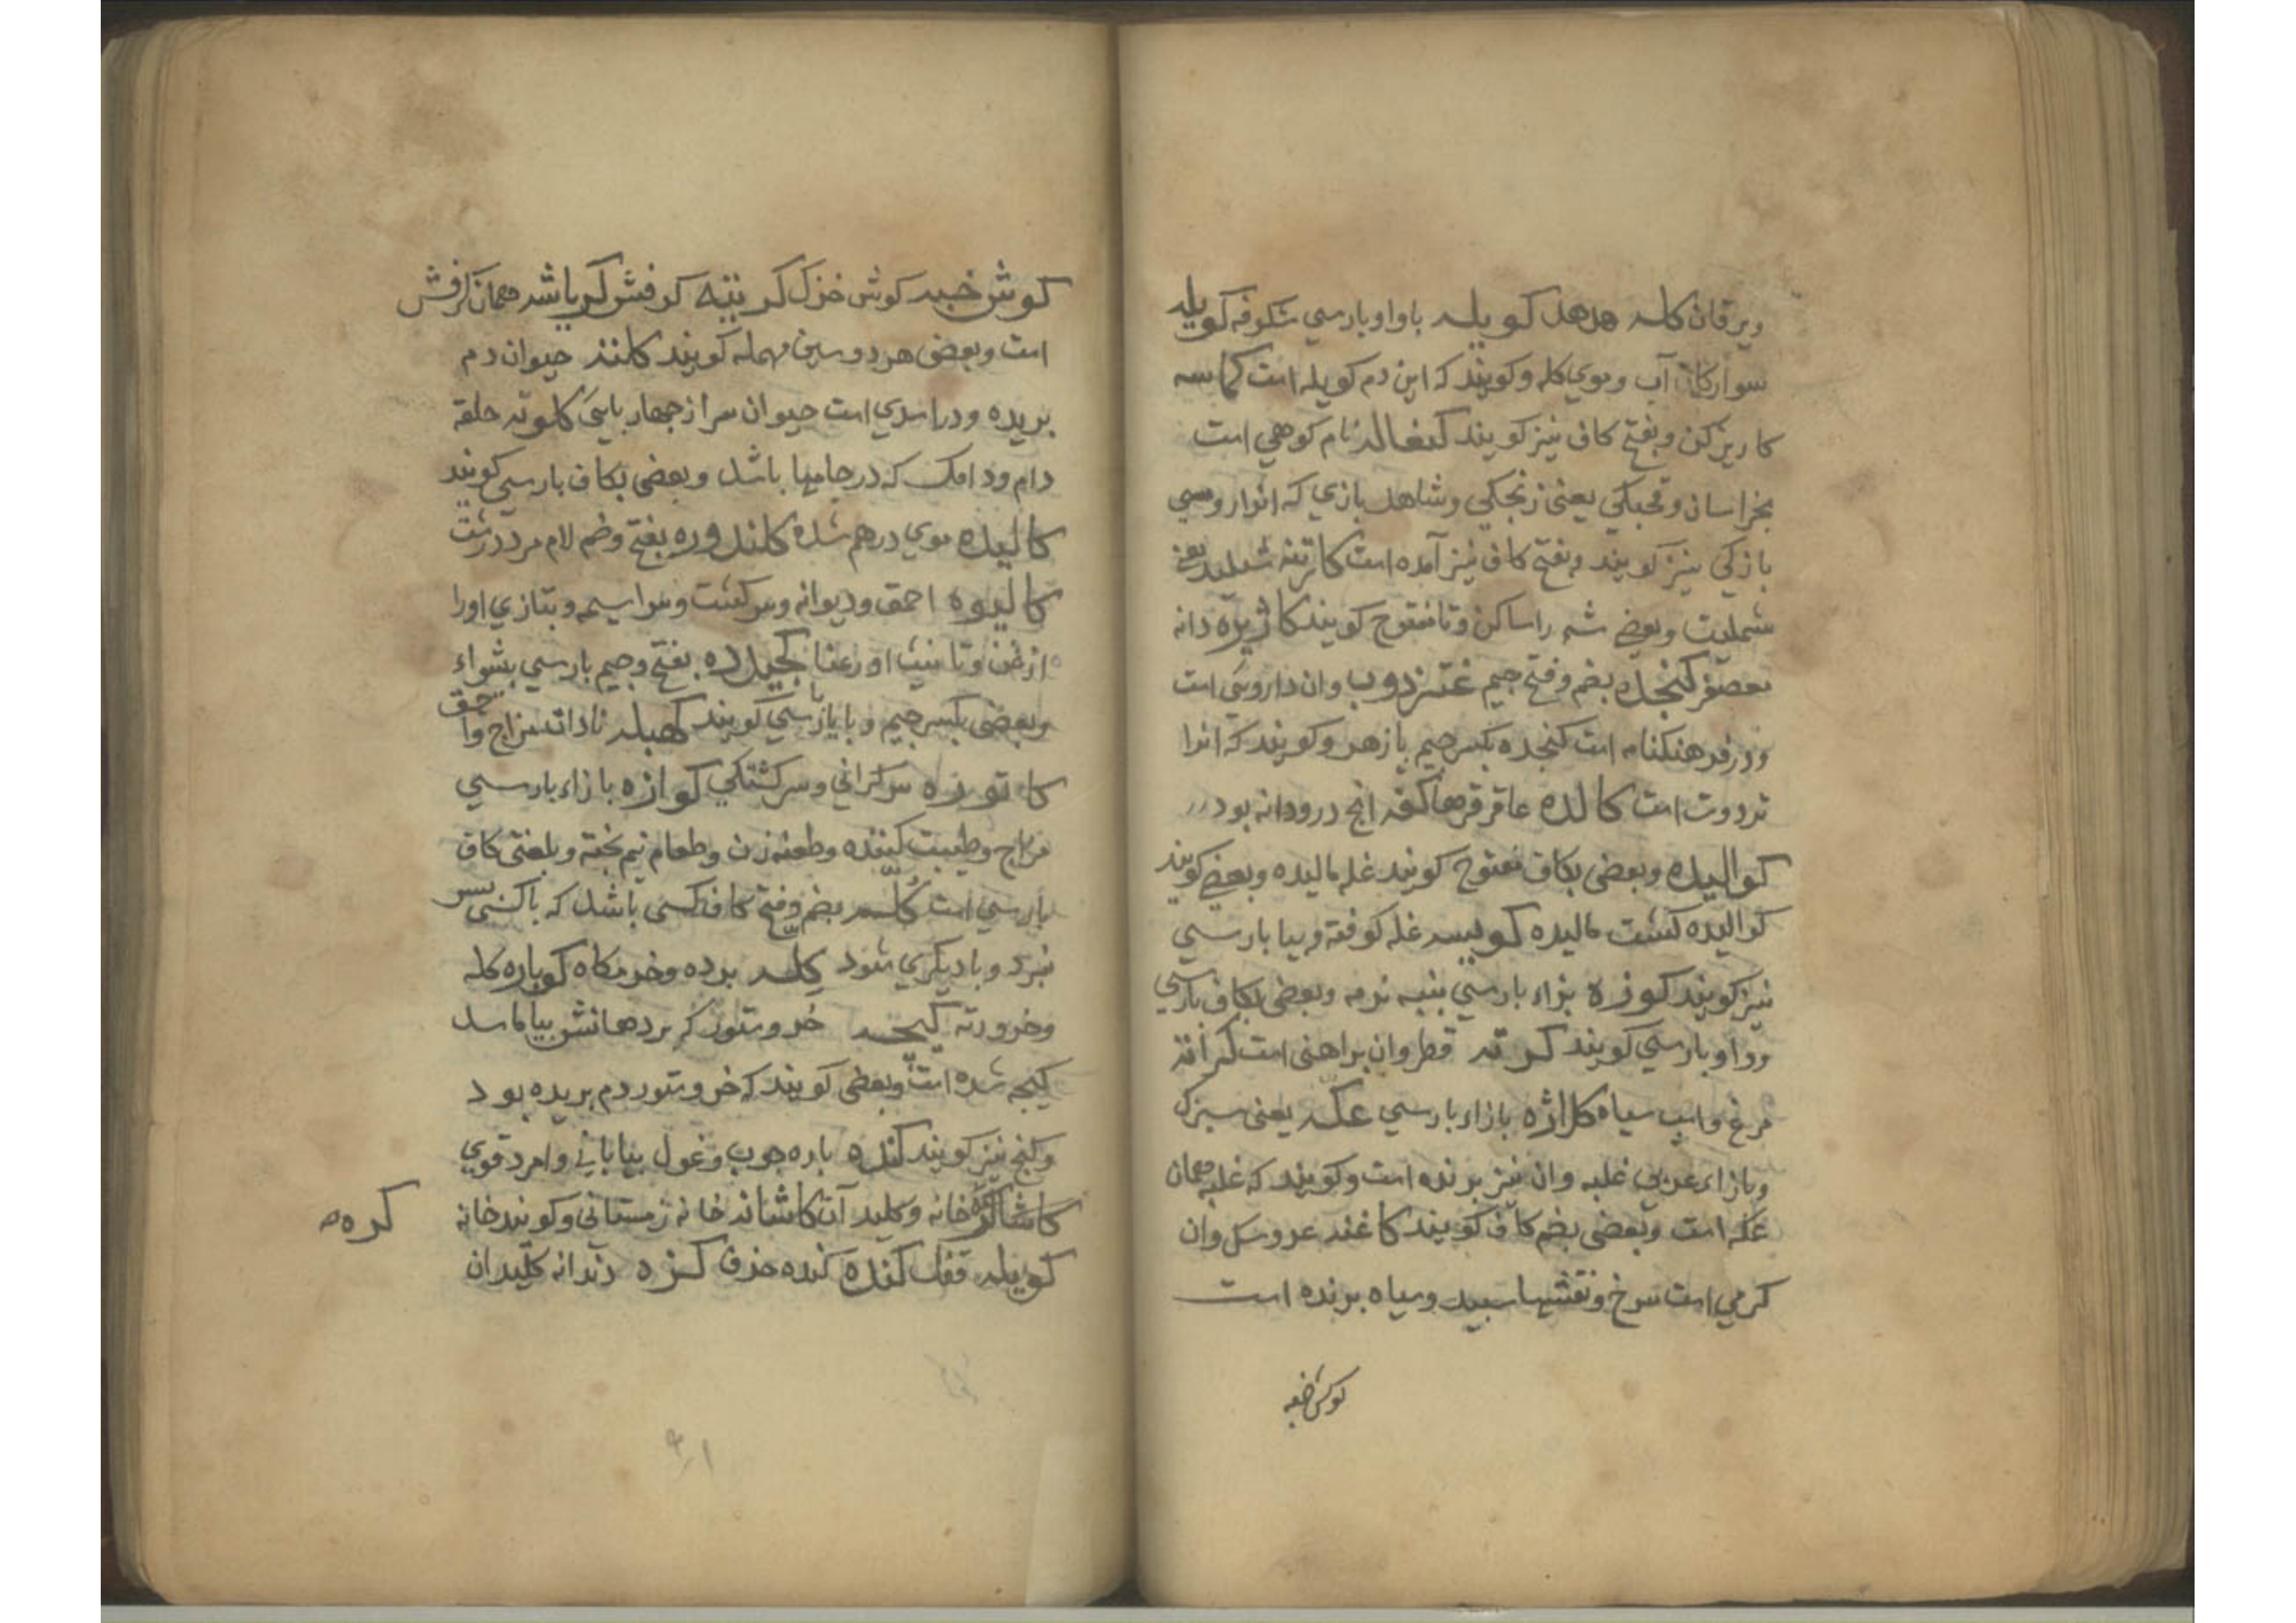 ویرقان کله هدهد کویله باواو بارسي شکوفه کویله
سوارکان آب وموي کله وکویند که این دم کویله است کماسه
کاریزکن وبفتح کاف نیز کویند کنغاله نام کوهي است
بخراسان وقحبکي یعنی زنجکي وشاهد بازي که انوار وسبي
بازکي نیز کویند وبفتح کاف نیز آمده است شملید یعنی
شملیت وبعضي شه راساکن وتا مفتوح کویند کاژیره دانه
معصفر کنجده بضم وفتح جیم عنزروب وان داروئي است
ودر فرهنکنامه است کنجده بکسر جیم بازهر وکویند که انرا
تردوت است کالده عاقرقرها کفه انج درودانه بود
کوالیده وبعضی بکاف مفتوح کویند غله مالیده وبعضي کویند
کوالیده کشت مالیده کوبیسه غله کوفته وبیا بارسي
نیز کویند کوزره بزاء بارسي بنبه نرمه وبعضی بکاف بارسي
وواو بارسي کویند کرته قطروان براهنی است کرانه
مرغ واسب سیاه کلاژه بازاء بارسي عکه یعنی سبزک
وبازاء عربي غلبه وان نیز برنده است وکویند که غلبه همان
عکه است وبعضی بضم کاف کویند کاغنه عروسک وان
کرمي است سرخ ونقشها سبید وسیاه برنده است
کوش خبه
کوش خبه کوش خزک کربیته کرفش کرباشه همان کرفش
است وبعضی هردو سین مهمله کویند کلنده حیوان دم
بریده ودراسدي است حیوان سر ازجهاربایئ کلوته حلقه
دام ودامک که درجامها باشد وبعضی بکاف بارسي کویند
کالیده موي درهم شده کلندوره بفتح وضم لام مرد درشت
کالیوه احمق ودیوانه وسرکشت وسراسیمه وبتازي اورا
ازعن وتانیث اورعنا کجیده بفتح وجیم بارسي بشواء
وبعضی بکسر جیم وبا بارسي کویند کهبله نادانه مزاج واحمق
کاتوره سرکرانی وسرکشتکي کوازه بازاء بارسي
مزاح وطیبت کننده وطعنه زن وطعام نیم بخته وبلغتی کاف
بارسي است کله بضم وفتح کاف کسی باشد که باکسی بسر
نبرد وبادیکري شود کله برده وخرمکاه کوباره کله
وخرورته کیجه خر وستور که بردهانش بیاماسد
کیجه شده است وبعضی کویند که خر وستور دم بریده بود
وکنج نیز کویند کنده باره جوب وغول بیابانی وامرد قوي
کاشانه خانه وکلید آن کاشانه خانه زمستانی وکویند خانه
کره
کویله قفل کنده کنده خندق کزه دندانه کلیدان